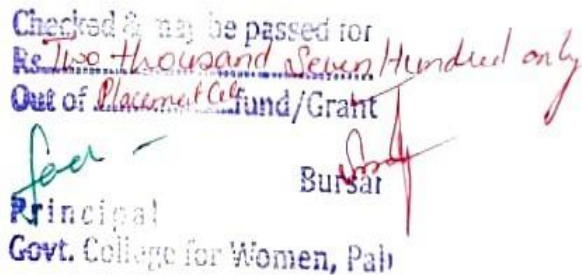 Checked & may be passed for
Rs. Two thousand Seven Hundred only
Out of Placement Cell fund/Grant
Bursar
Principal
Govt. College for Women, Pali